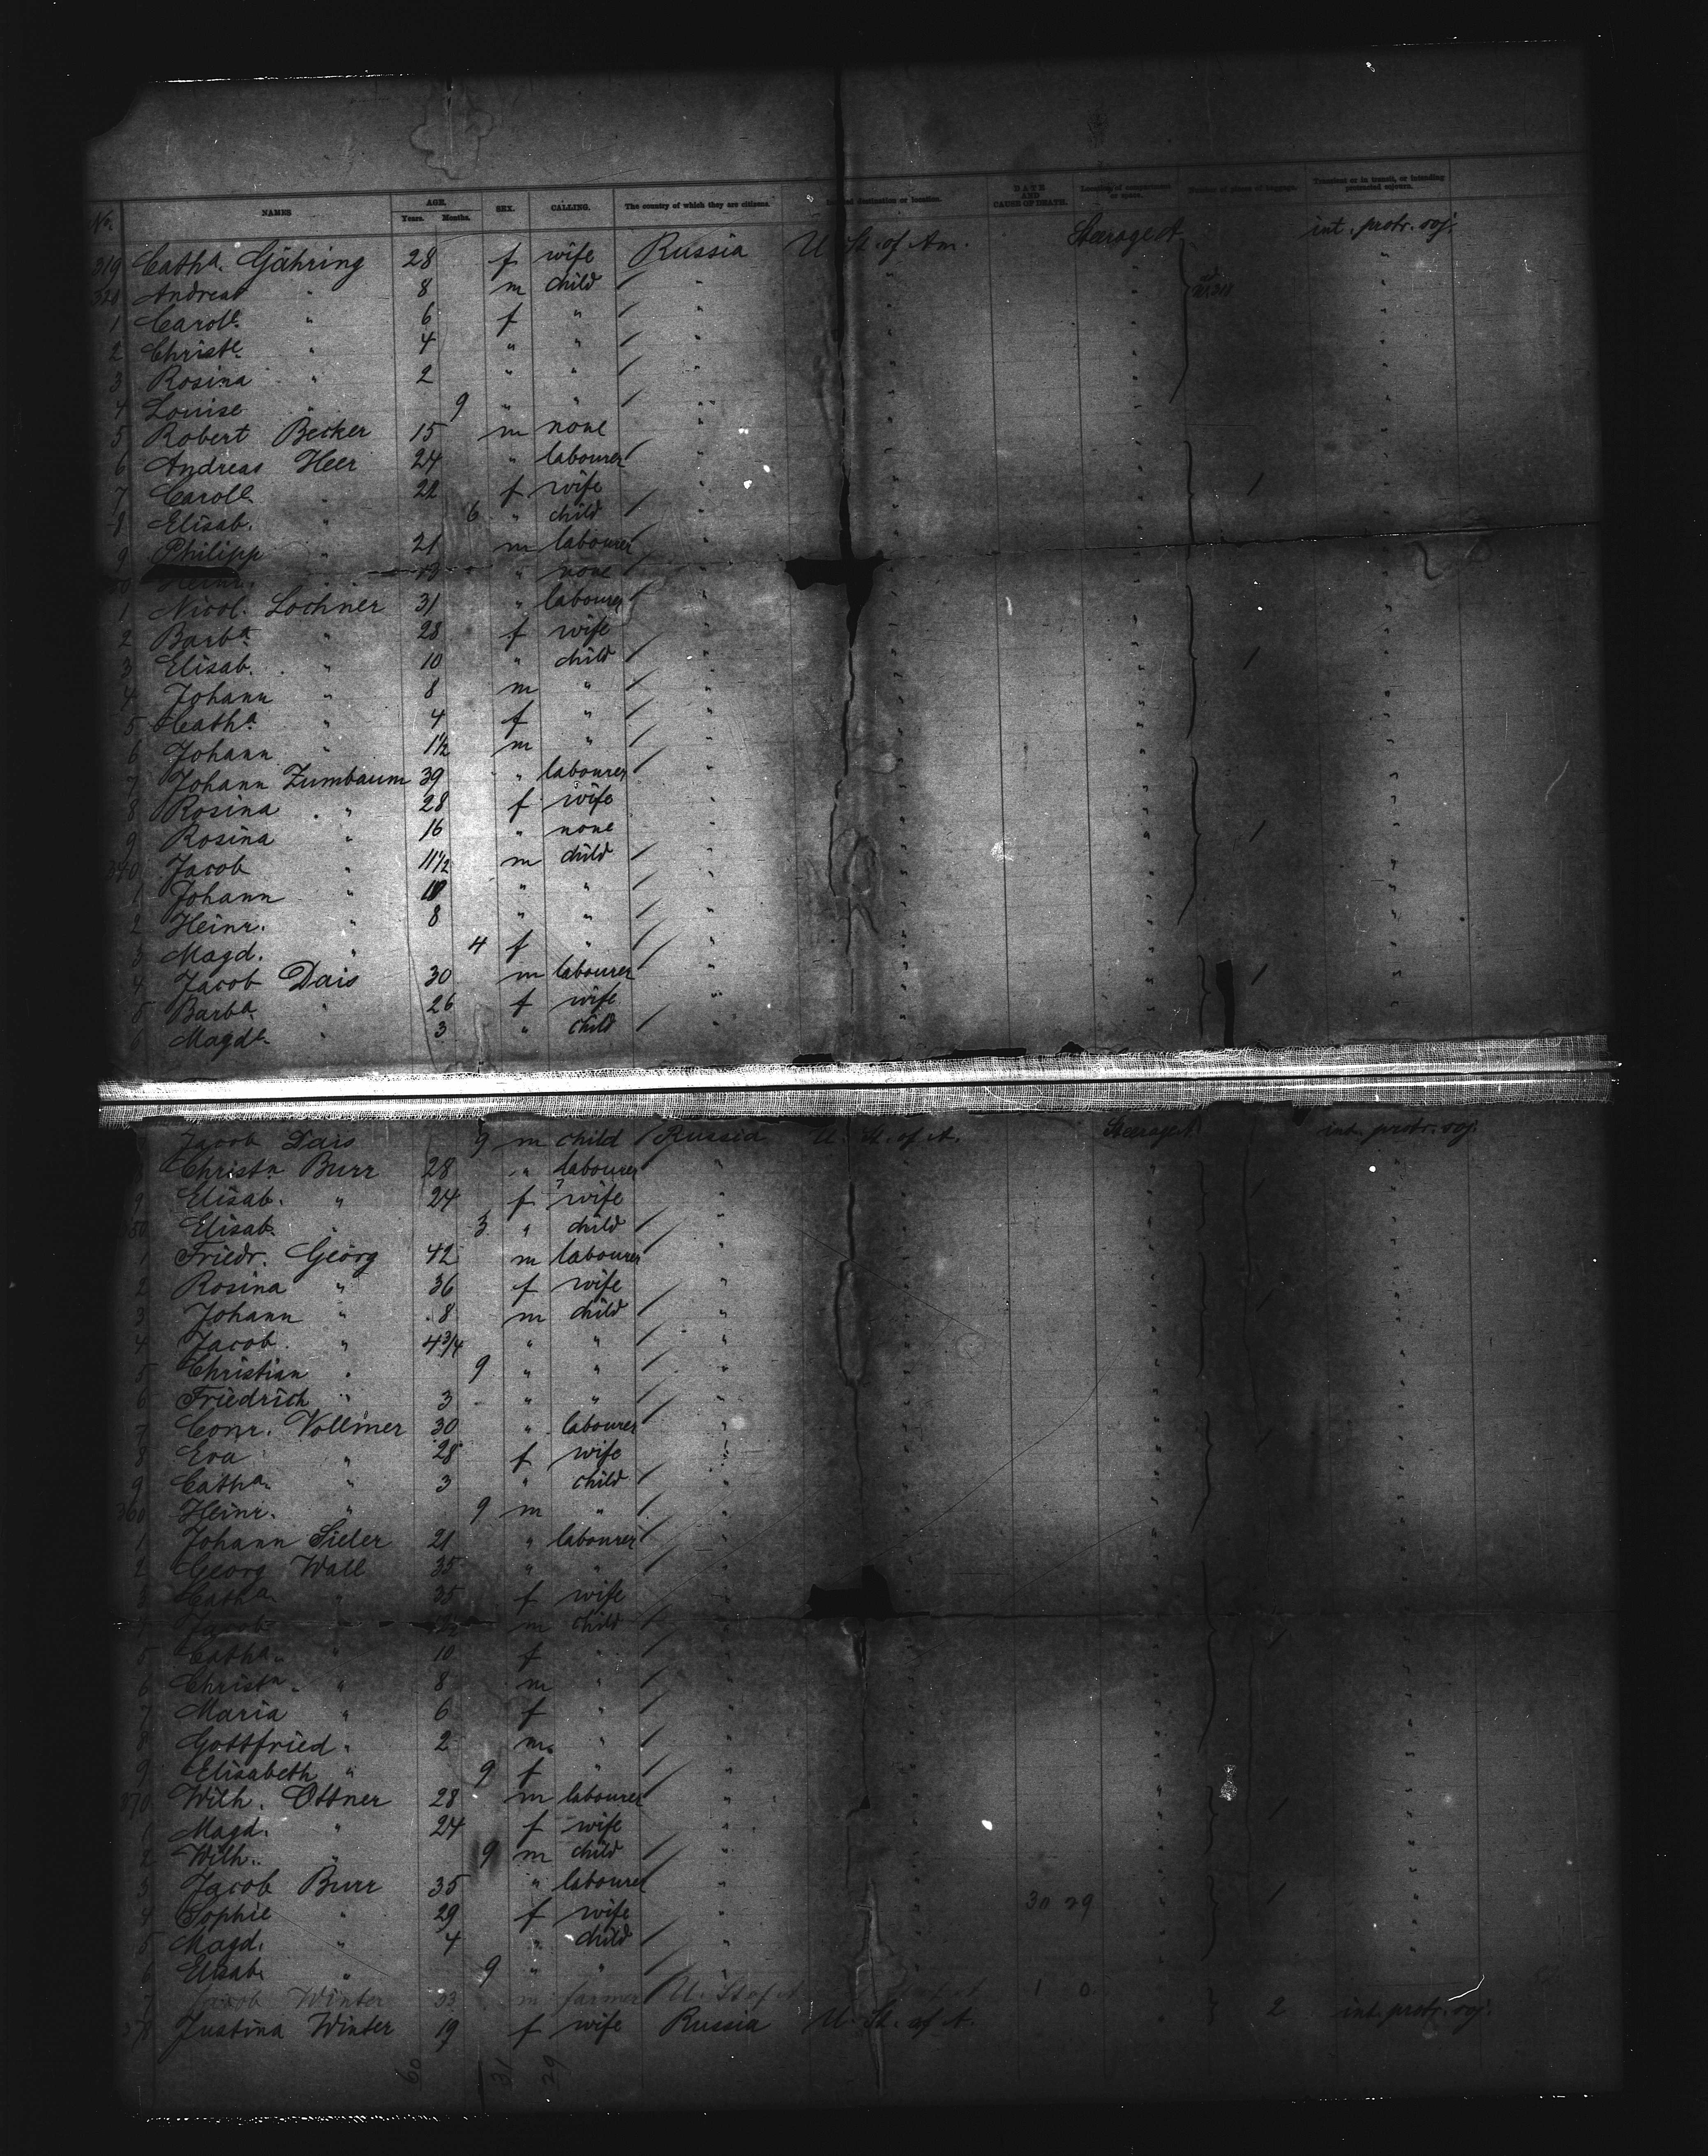 No. NAMES AGE. Years. Months. SEX. CALLING. The country of which they are citizens. destination or location. DATE AND CAUSE OF DEATH. Location of compartment or space. Number of pieces of baggage. Transient or in transit, or intending protracted sojourn.
319 Catha. Gähring 28 f wife Russia U. St. of Am. Steerage A int. protr. soj.
320 Andreas " 8 m child / " " " "
1 Carole. " 6 f " / " " " "
2 Christe. " 4 " " / " " " "
3 Rosina " 2 " " / " " " "
4 Louise " 9 " " / " " " "
5 Robert Becker 15 m none " " " "
6 Andreas Heer 24 " labourer / " " " "
7 Carole. " 22 f wife " " " 1 "
8 Elisab. " 6 " child / " " " "
9 Philipp " 21 m labourer / " " " "
30 Heinr. " " none / " " " "
1 Nicol. Lochner 31 " labourer / " " " "
2 Barba. " 28 f wife " " " "
3 Elisab. " 10 " child / " " " 1 "
4 Johann " 8 m " / " " " "
5 Catha. " 4 f " / " " " "
6 Johann " 1½ m " / " " " "
7 Johann Zumbaum 39 " labourer / " " " "
8 Rosina " 28 f wife " " " "
9 Rosina " 16 " none " " " 1 "
340 Jacob " 11½ m child / " " " "
1 Johann " 10 " " / " " " "
2 Heinr. " 8 " " / " " " "
3 Magd. " 4 f " / " " " "
4 Jacob Dais 30 m labourer / " " " 1 "
5 Barba. " 26 f wife " " " "
6 Magde. " 3 " child / " " " "
Jacob Dais 9 m child / Russia U. St. of A. Steerage A int. protr. soj.
8 Christn. Burr 28 " labourer " " " "
9 Elisab. " 24 f wife " " " 1 "
350 Elisab. " 3 " child / " " " "
1 Friedr. Georg 42 m labourer / " " " "
2 Rosina " 36 f wife " " " "
3 Johann " 8 m child / " " " 1 "
4 Jacob " 4¾ " " / " " " "
5 Christian " 9 " " / " " " "
6 Friedrich " 3 " " / " " " "
7 Conr. Vollmer 30 " labourer / " " " "
8 Eva " 28 f wife " " " "
9 Catha. " 3 " child / " " " "
360 Heinr. " 9 m " / " " " "
1 Johann Sieler 21 " labourer / " " " "
2 Georg Wall 35 " " / " " " "
3 Catha. " 35 f wife " " " "
4 Jacob " m child / " " " "
5 Catha. " 10 f " / " " " 1 "
6 Christn. " 8 m " / " " " "
7 Maria " 6 f " / " " " "
8 Gottfried " 2 m. " / " " " "
9 Elisabeth " 9 f " / " " " "
370 Wilh. Ottner 28 m labourer / " " " 1 "
1 Magd. " 24 f wife " " " "
2 Wilh. " 9 m child / " " " "
3 Jacob Burr 35 " labourer / " " " 1 "
4 Sophie " 29 f wife " " 30 29 " "
5 Magd. " 4 " child / " " " "
6 Elisab. " 9 " " / " " " "
7 Jacob Winter 33 m farmer / U. St of A 1 0
378 Justina Winter 19 f wife Russia U. St. of A. " 2 int. protr. soj.
60 31 29